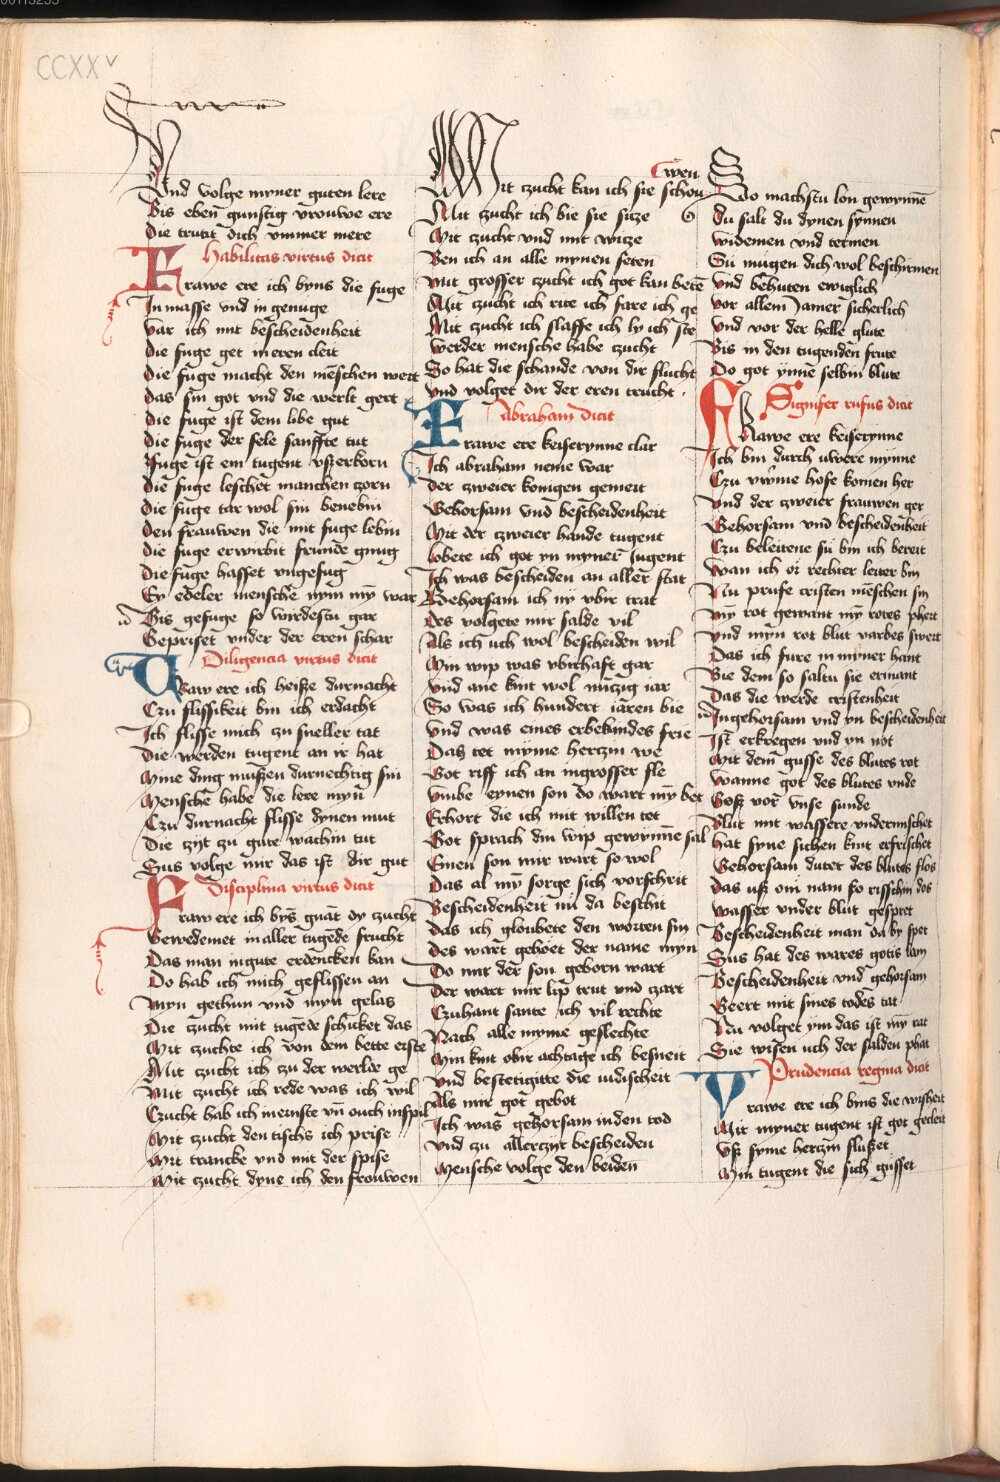 CCXX v
Vnd volge myner guten lere
Bis eben gunstig vrouwe ere
Die trutit dich vmmer mere
Habilitas virtus dicit
Frawe ere ich byns die fuge
In masse vnd in genuge
Var ich mit bescheidenheit
Die fuge get in eren cleit
Die fuge macht den mēschen wert
Das sin got vnd die werlt gert
Die fuge ist dem libe gut
Die fuge der sele sanffte tut
Fuge ist ein tugent vsterkorn
Die fuge leschet manchen zorn
Die fuge tar wol sin benebin
Den frauwen die mit fuge lebin
Die fuge erwirbit frunde gnug
Die fuge hasset vngefug
Ey edeler mensche nym mȳ war
Bis gefuge so wirdestu gar
Gepriset vnder der eren schar
Diligencia virtus dicit
Fraw ere ich heiße durnacht
Czu flissikeit bin ich erdacht
Ich flisse mich zu sneller tat
Die werden tugent an ir hat
Myne ding mußen durnechtig sin
Mensche habe die lere myn
Czu durnacht flisse dynen mut
Die zijt zu gute wachin tut
Sus volge mir das ist dir gut
Disciplina virtus dicit
Fraw ere ich bys gnāt dy zucht
Gewedemet in aller tugēde frucht
Das man in gute erdencken kan
Do hab ich mich geflissen an
Myn gethun vnd myn gelas
Die zucht mit tugēde schicket das
Mit zuchte ich von dem bette erste
Mit zucht ich zu der werlde ge
Mit zucht ich rede was ich wil
Czucht hab ich in ernste vn̄ ouch in spil
Mit zucht den tischs ich prise
Mit trancke vnd mit der spise
Mit zucht dyne ich den frouwen
Mit zucht kan ich sie schouwen
Mit zucht ich bie sie sitze
Mit zucht vnd mit witze
Ben ich an alle mynen seten
Mit grosser zucht ich got kan betē
Mit zucht ich rite ich fare ich ge
Mit zucht ich slaffe ich ly ich ste
Werder mensche habe zucht
So hat die schande von dir flucht
Vnd volget dir der eren trucht
Abraham dicit
Frawe ere keiserynne clar
Ich abraham neme war
Der zweier konigen gemeit
Gehorsam vnd bescheidenheit
Mit der zweier hande tugent
lobete ich got yn myner Jugent
Ich was bescheiden an aller stat
Gehorsam ich ny vbir trat
Des volgete mir salde vil
Als ich uch wol bescheiden wil
Myn wip was vbirhaft gar
Vnd ane kint wol nūtzig iar
So was ich hundert iaren bie
Vnd was eines erbekindes frie
Das tet myme hertzin we
Got riff ich an in grosser fle
Vmbe eynen son do wart mȳ bet
Erhort die ich mit willen tet
Got sprach din wip gewynne sal
Einen son mir wart so wol
Das al mȳ sorge sich vorschreit
Bescheidenheit mi da beschit
Das ich gloubete den worten sin
Des wart gehoet der name myn
Do mir der son geborn wart
Der wart mir lip trut vnd zart
Czuhant sante ich vil rechte
Nach alle myme geslechte
Myn kint obir achtage ich besneit
Vnd bestetigitte die iudischeit
Als mir got gebot
Ich was gehorsam in den tod
Vnd zu allerzijt bescheiden
Mensche volge den beiden
So machstu lon gewynnē
Du salt du dynen synnen
Widemen vnd termen
Su mugen dich wol beschirmen
Vnd behuten ewiglich
Vor allem Jamer sicherlich
Vnd vor der helle glute
Bis in den tugenden frute
Do got ynme selbin blute
Signifer rufus dicit
Frawe ere keiserynne
Ich bin durch uwere mynne
Czu uwme hofe komen her
Vnd der zweier frauwen ger
Gehorsam vnd bescheidenheit
Czu beleitene su bin ich bereit
Wan ich or rechter leiter bin
Nu prufe cristen meschen sin
Mȳ rot gewant mȳ rotes phert
Vnd myn rot blut varbes swert
Das ich fure in myner hant
Bie dem so saltu sie ermant
Das die werde cristenheit
In gehorsam vnd yn bescheidenheit
Ist erkregen vnd vn not
Mit dem gusse des blutes rot
Wanne got des blutes vnde
Goß vor vnse sunde
Blut mit wassere vndermischet
hat syne sichen kint erfrischet
Gehorsam dutet des blutes flos
Das uß om nam so risschin dos
Wasser vnder blut gespret
Bescheidenheit man da by spet
Sus hat des wares gotis lam
Bescheidenheit vnd gehorsam
Geert mit sines todes tat
Nu volget ym das ist mȳ rat
Sie wisen uch der salden phat
Prudencia regina dicit
Frawe ere ich bins die wisheit
Mit myner tugent ist got gecleit
Vß syme hertzin flußet
Myn tugent die sich gusset